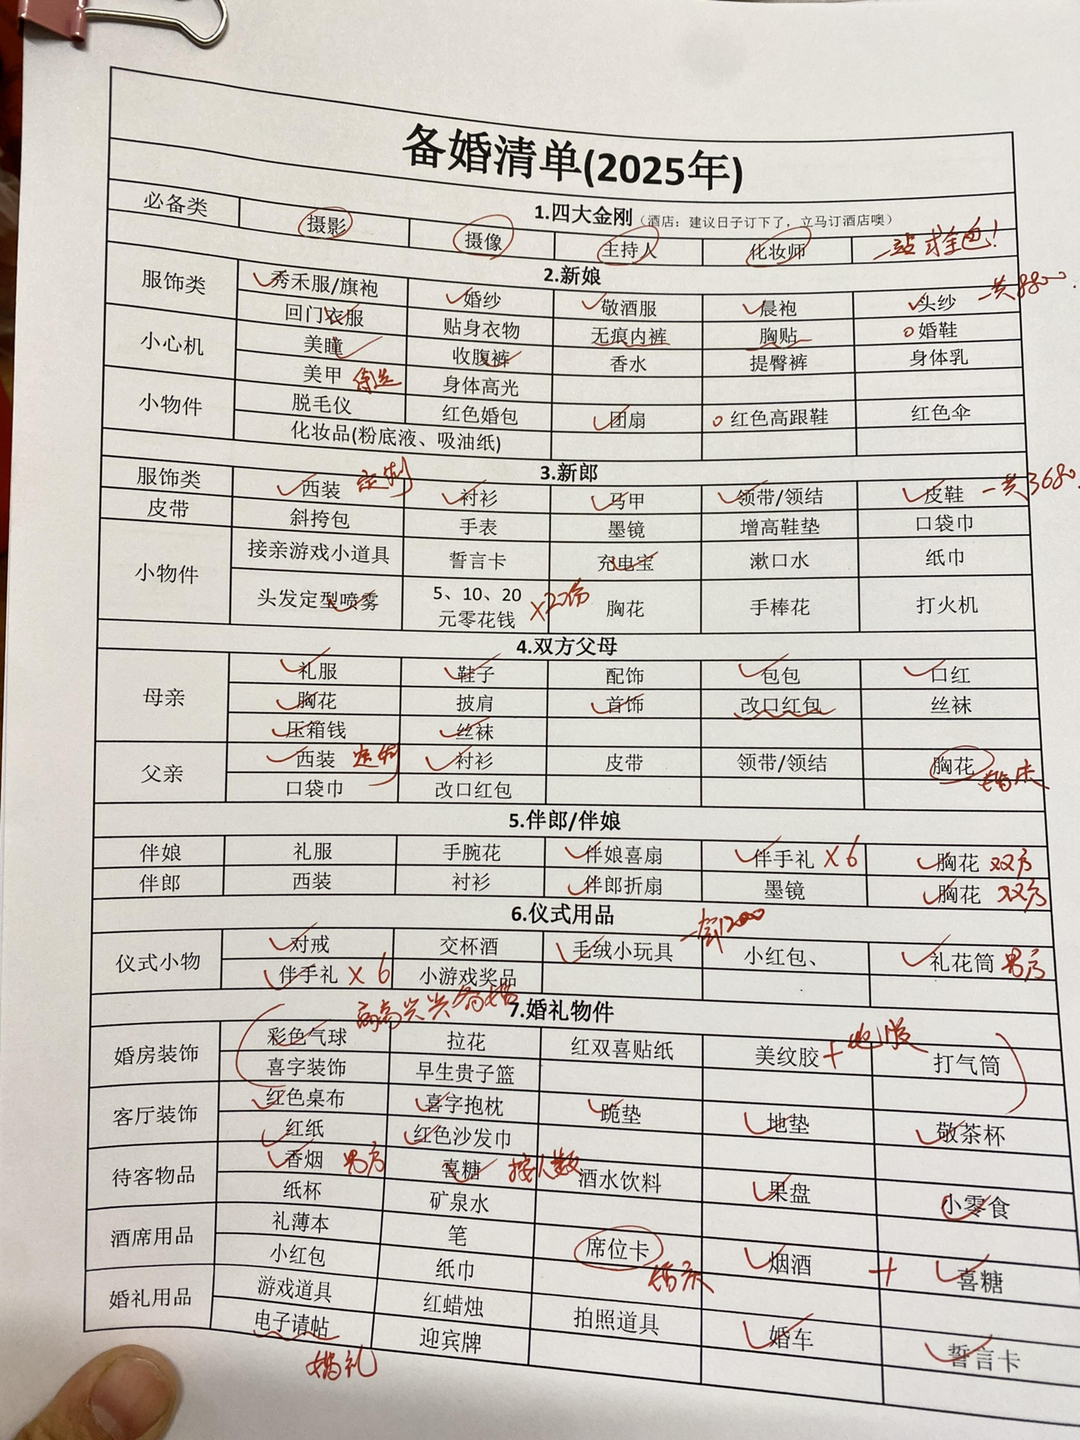 备婚清单(2025年)
1.四大金刚（酒店：建议日子订下了，立马订酒店噢）
必备类 摄影 摄像 主持人 化妆师
2.新娘
服饰类 秀禾服/旗袍 婚纱 敬酒服 晨袍 头纱 一共8800
回门衣服 贴身衣物 无痕内裤 胸贴 婚鞋
小心机 美瞳 收腹裤 香水 提臀裤 身体乳
美甲 身体高光
小物件 脱毛仪 红色婚包 团扇 红色高跟鞋 红色伞
化妆品(粉底液、吸油纸)
3.新郎
服饰类 西装 定制 衬衫 马甲 领带/领结 皮鞋 一共3680
皮带 斜挎包 手表 墨镜 增高鞋垫 口袋巾
小物件 接亲游戏小道具 誓言卡 充电宝 漱口水 纸巾
头发定型喷雾 5、10、20 胸花 手棒花 打火机
元零花钱 X22份
4.双方父母
母亲 礼服 鞋子 配饰 包包 口红
胸花 披肩 首饰 改口红包 丝袜
压箱钱 丝袜
父亲 西装 定制 衬衫 皮带 领带/领结 胸花 婚庆
口袋巾 改口红包
5.伴郎/伴娘
伴娘 礼服 手腕花 伴娘喜扇 伴手礼 X6 胸花 双方
伴郎 西装 衬衫 伴郎折扇 墨镜 胸花 双方
6.仪式用品
仪式小物 对戒 交杯酒 毛绒小玩具 小红包、 礼花筒 男方
伴手礼 X6 小游戏奖品
7.婚礼物件
婚房装饰 彩色气球 拉花 红双喜贴纸 美纹胶 + 打气筒
喜字装饰 早生贵子篮
客厅装饰 红色桌布 喜字抱枕 跪垫 地垫 敬茶杯
红纸 红色沙发巾
待客物品 香烟 男方 喜糖 按人数 酒水饮料 果盘 小零食
纸杯 矿泉水
酒席用品 礼薄本 笔 席位卡 婚庆 烟酒 + 喜糖
小红包 纸巾
婚礼用品 游戏道具 红蜡烛 拍照道具 婚车 誓言卡
电子请帖 迎宾牌
婚礼